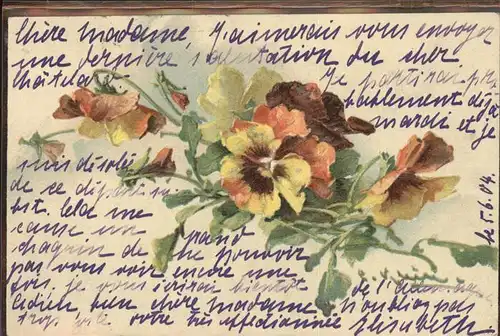 Chère madame, J'aimerais vous envoyer
une dernière salutation du cher
châtelard. Je partirai pro-
bablement déjà
mardi et je
suis désolée
de ce départ su-
bit. Cela me
cause un
chagrin de ne pouvoir
grand
pas vous voir encore une
fois. Je vous écrirai bientôt
de l'
Adieu bien chère madame N'oubliez pas
trop vite votre très affectionnée Elisabeth
le 5.6.04.